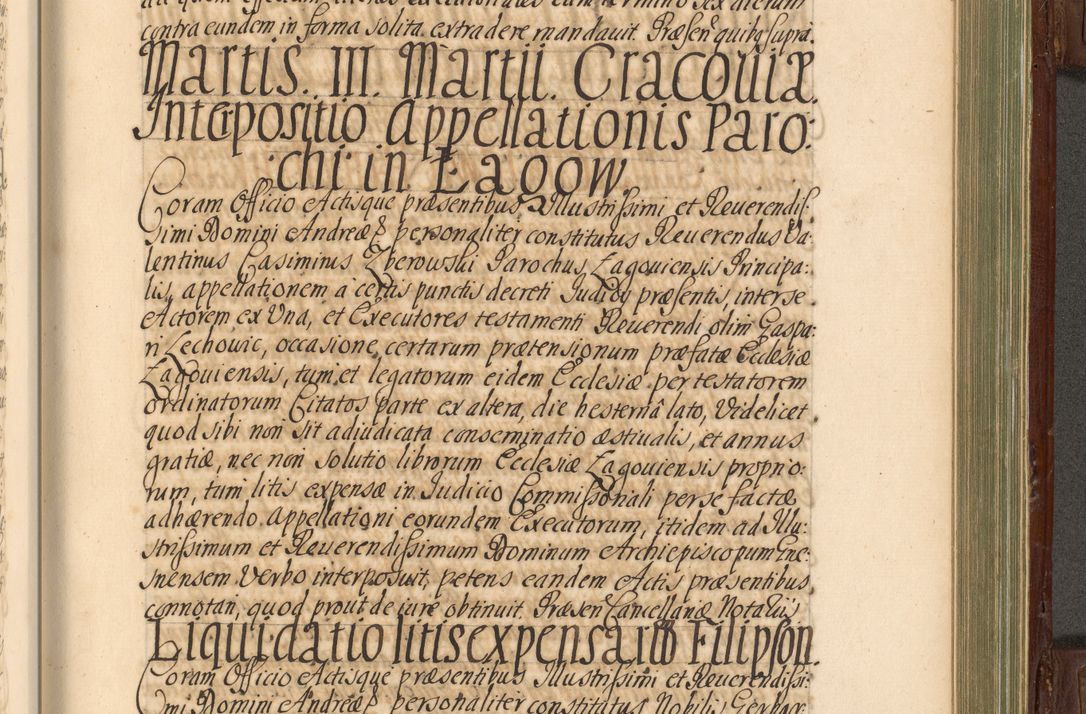 contra eundem in forma solita extradere mandavit. Præsen quibg supra.
Martis. III. Martii. Cracoviæ.
Interpositio Appellationis Paro:
chi in Łagow
Coram Officio Actisque præsentibus Illustrissimi et Reuerendis:
simi Domini Andreæ personaliter constitutus Reuerendus Va:
lentinus Casimirus Zberowski Parochus Łagouiensis Principa:
lis, appellationem a certis punctis decreti Judicij præsentis, inter se
Actorem ex Vna, et Executores testamenti Reuerendi olim Gaspa:
ri Lechowic, occasione certarum prætensionum præfatæ Ecclesiæ
Łagouiensis, tum et legatorum eidem Ecclesiæ per testatorem
ordinatorum Citatos parte ex altera, die hesternâ lato, Videlicet
quod sibi non sit adiudicata conseminatio æstiualis, et annus
gratiæ, nec non solutio librorum Ecclesiæ Łagouiensis proprio:
rum, tum litis expensæ in Judicio Commissionali per se factæ,
adhærendo Appellationi eorundem Executorum, itidem ad Illu:
strissimum et Reuerendissimum Dominum Archiepiscopum Gne:
snensem Verbo interposuit, petens eandem Actis præsentibus
connotari, quod prout de iure obtinuit. Præsen Cancellariæ Notariis
Liquidatio litis expensarū Filipson.
Coram Officio Actisque præsentibus Illustrissimi et Reuerendissi:
mi Domini Andreæ personaliter constitutus Nobilis Gerhar: